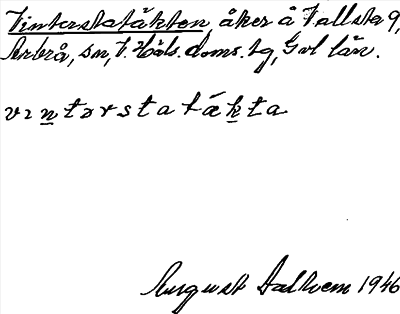 Vinterstatäkten åker å Vallsta 9,
Arbrå, sn, V. Häls. doms. tg, Gvl län.
vintərstatäkta
August Dalhem 1946